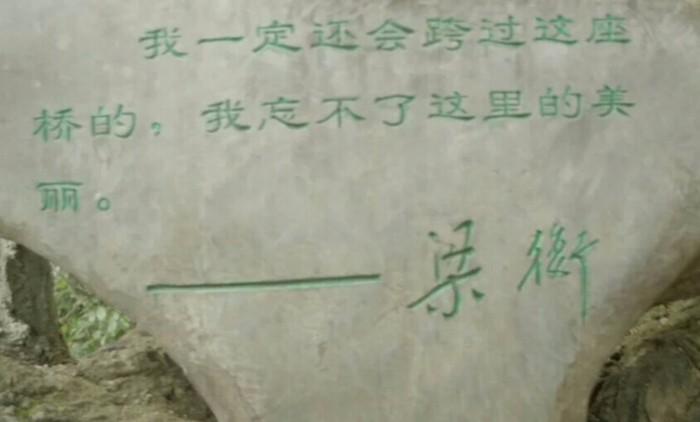 我一定还会跨过这座
桥的，我忘不了这里的美
丽。
——梁衡